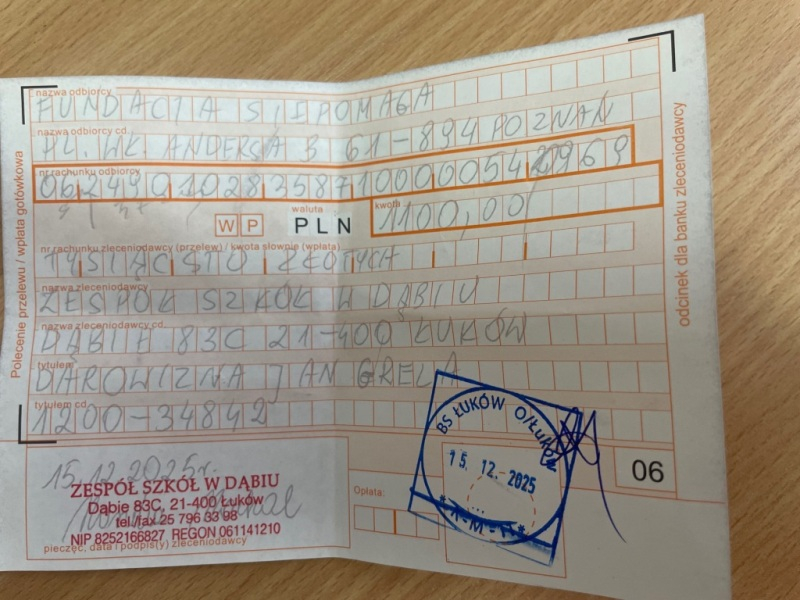 nazwa odbiorcy
FUNDACJA SIEPOMAGA
nazwa odbiorcy cd.
PL. WŁ. ANDERSA 3 61-894 POZNAŃ
nr rachunku odbiorcy
06 2490 1028 3587 1000 0054 2969
W P
waluta
PLN
kwota
1100,00
nr rachunku zleceniodawcy (przelew) / kwota słownie (wpłata)
TYSIĄC STO ZŁOTYCH
nazwa zleceniodawcy
ZESPÓŁ SZKÓŁ W DĄBIU
nazwa zleceniodawcy cd.
DĄBIE 83C 21-400 ŁUKÓW
tytułem
DAROWIZNA JAN GRELA
tytułem cd.
1200-34842
15.12.2025r.
ZESPÓŁ SZKÓŁ W DĄBIU
Dąbie 83C, 21-400 Łuków
tel./fax 25 796 33 98
NIP 8252166827 REGON 061141210
pieczęć, data i podpis(y) zleceniodawcy
BS ŁUKÓW O/Łuków
15. 12. 2025
Opłata:
06
Polecenie przelewu / wpłata gotówkowa
odcinek dla banku zleceniodawcy